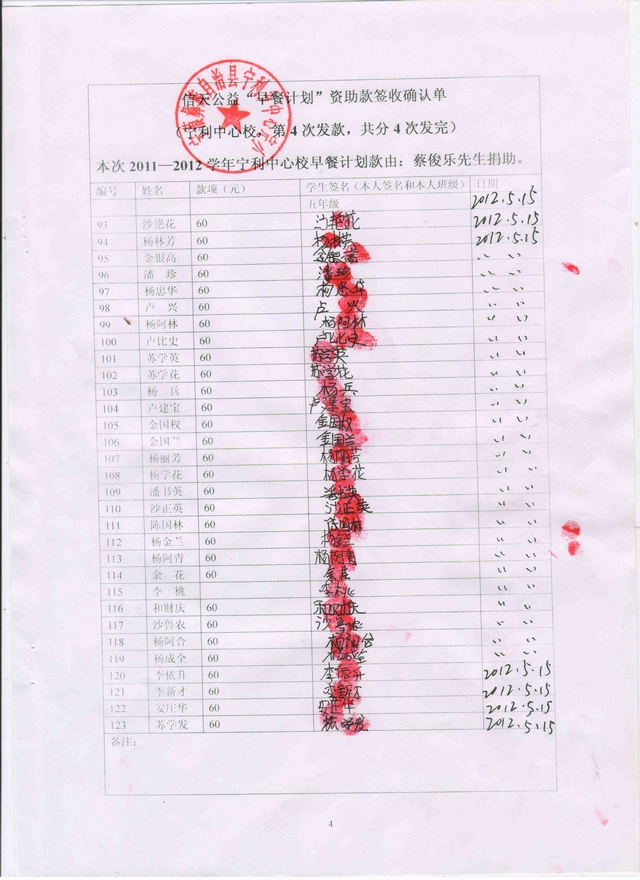 信天公益“早餐计划”资助款签收确认单
（宁利中心校，第4次发款，共分4次发完）
本次2011—2012学年宁利中心校早餐计划款由：蔡俊乐先生捐助。
编号 姓名 款项（元） 学生签名（本人签名和本人班级） 日期
五年级 2012.5.15
93 沙艳花 60 沙艳花 2012.5.15
94 杨林芳 60 杨林芳 2012.5.15
95 金银高 60 金银高 〃 〃
96 潘 珍 60 潘珍 〃 〃
97 杨忠华 60 杨忠华 〃 〃
98 卢 兴 60 卢 兴 〃 〃
99 杨阿林 60 杨阿林 〃 〃
100 卢比史 60 卢比史 〃 〃
101 苏学英 60 苏学英 〃 〃
102 苏学花 60 苏学花 〃 〃
103 杨 兵 60 杨 兵 〃 〃
104 卢建宝 60 卢建宝 〃 〃
105 金国权 60 金国权 〃 〃
106 金国兰 60 金国兰 〃 〃
107 杨丽芳 60 杨丽芳 〃 〃
108 杨学花 60 杨学花 〃 〃
109 潘书英 60 潘书英 〃 〃
110 沙正英 60 沙正英 〃 〃
111 陈国林 60 陈国林 〃 〃
112 杨金兰 60 杨金兰 〃 〃
113 杨阿青 60 杨阿青 〃 〃
114 余 花 60 余花 〃 〃
115 李 桃 李桃 〃 〃
116 和财庆 60 和财庆 〃 〃
117 沙鲁农 60 沙鲁农 〃 〃
118 杨阿合 60 杨阿合 〃 〃
119 杨成全 60 杨成全 〃 〃
120 李依升 60 李依升 2012.5.15
121 李新才 60 李新才 2012.5.15
122 安庄华 60 安庄华 2012.5.15
123 苏学发 60 苏学发 2012.5.15
备注：
4